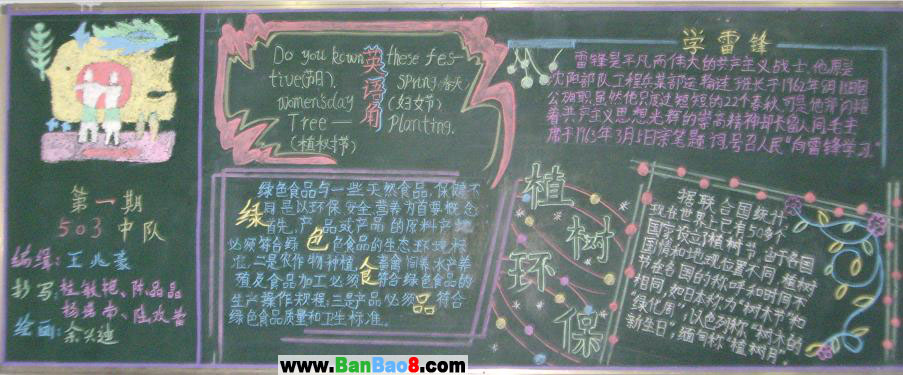 第一期
503中队
编辑:王兆豪
绘画:
Do you kown these fes-
tive(节日).
Spring 春天
Womensday
(妇女节)
Tree — Planting.
(植树节)
英语角
学雷锋
雷锋是平凡而伟大的共产主义战士,他原是
沈阳部队工程兵某部运输连班长于1962年8月15日因
公殉职,虽然他只度过短短的22个春秋,可是他那闪耀
着共产主义思想光辉的崇高精神却长留人间,毛主
席于1963年3月5日亲笔题词号召人民“向雷锋学习”
绿色食品与一些天然食品,保健不
同是以环保,安全,营养为首要概念
首先,产品或产品的原料产地
必须符合绿色食品的生态环境标
准.二是农作物种植,畜禽饲养,水产养
殖及食品加工必须符合绿色食品的
生产操作规程,三是产品必须符合
绿色食品质量和卫生标准。
绿色食品
植树环保
据联合国统计,
现在世界上已有50多个
国家设立植树节.由于各国
国情和地理位置不同,植树
节在各国的称呼和时间不
相同,如日本称为“树木节”和
绿化周”,以色列称“树木的
新生日”,缅甸称“植树月”
www.BanBao8.com